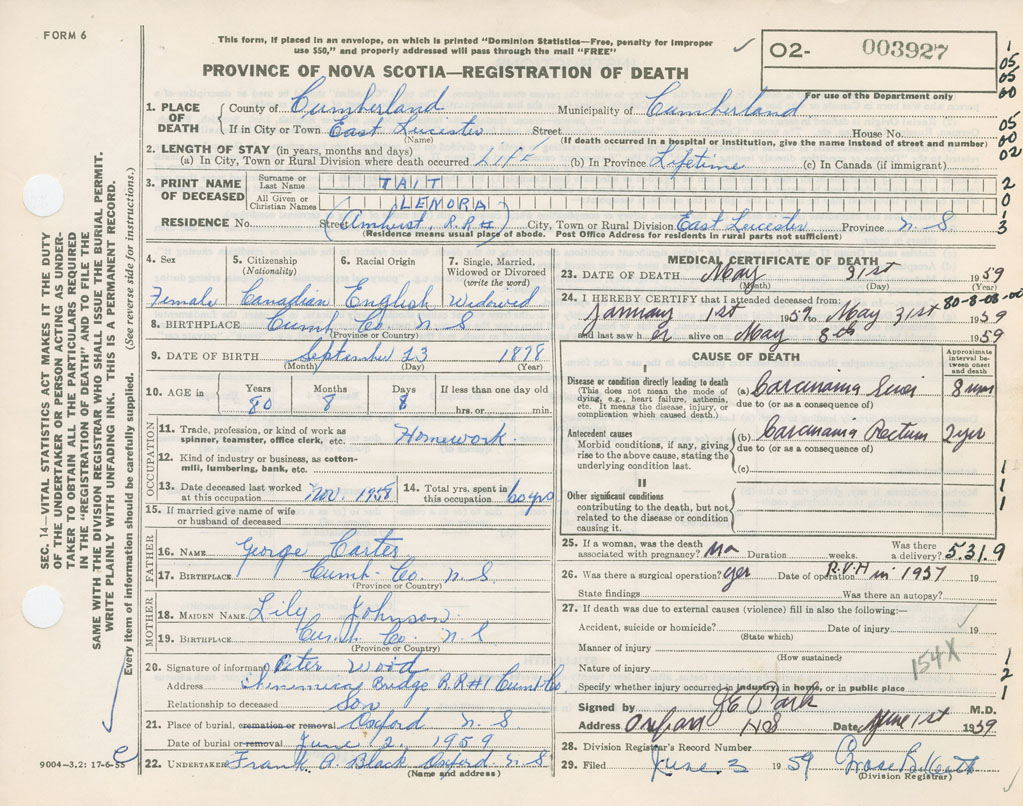 FORM 6
This form, if placed in an envelope, on which is printed "Dominion Statistics—Free, penalty for improper
use $50," and properly addressed will pass through the mail "FREE"
O2- 003927
For use of the Department only
PROVINCE OF NOVA SCOTIA—REGISTRATION OF DEATH
1. PLACE OF DEATH County of Cumberland Municipality of Cumberland
If in City or Town East Leicester Street House No.
(Name) (If death occurred in a hospital or institution, give the name instead of street and number)
2. LENGTH OF STAY (in years, months and days)
(a) In City, Town or Rural Division where death occurred LIFE (b) In Province Lifetime (c) In Canada (if immigrant)
3. PRINT NAME OF DECEASED Surname or Last Name TAIT
All Given or Christian Names LENORA
RESIDENCE No. Street (Amherst, R.R#1) City, Town or Rural Division East Leicester Province N.S.
(Residence means usual place of abode. Post Office Address for residents in rural parts not sufficient)
4. Sex 5. Citizenship (Nationality) 6. Racial Origin 7. Single, Married, Widowed or Divorced (write the word)
Female Canadian English Widowed
8. BIRTHPLACE Cumb. Co. N.S
(Province or Country)
9. DATE OF BIRTH September 23 1878
(Month) (Day) (Year)
10. AGE in Years Months Days If less than one day old
80 8 8 hrs. or min.
OCCUPATION
11. Trade, profession, or kind of work as spinner, teamster, office clerk, etc. Homework.
12. Kind of industry or business, as cotton-mill, lumbering, bank, etc.
13. Date deceased last worked at this occupation Nov. 1958 14. Total yrs. spent in this occupation 60 yrs
15. If married give name of wife or husband of deceased
FATHER
16. NAME George Carter
17. BIRTHPLACE Cumb. Co. N.S.
(Province or Country)
MOTHER
18. MAIDEN NAME Lily Johnson.
19. BIRTHPLACE Cumb. Co. N.S
(Province or Country)
20. Signature of informant Peter Wood
Address Bridge R.R#1 Cumb Co
Relationship to deceased Son
21. Place of burial, cremation or removal Oxford N.S
Date of burial or removal June 2, 1959
22. UNDERTAKER Frank A. Black Oxford N.S
(Name and address)
MEDICAL CERTIFICATE OF DEATH
23. DATE OF DEATH May 31st 1959
(Month) (Day) (Year)
24. I HEREBY CERTIFY that I attended deceased from: 80-8-08-00
January 1st 1959 to May 31st 1959
and last saw her alive on May 8th 1959
CAUSE OF DEATH
Approximate interval between onset and death
I
Disease or condition directly leading to death
(This does not mean the mode of dying, e.g., heart failure, asthenia, etc. It means the disease, injury, or complication which caused death.)
(a) Carcinoma 8 mos
due to (or as a consequence of)
Antecedent causes
Morbid conditions, if any, giving rise to the above cause, stating the underlying condition last.
(b) Carcinoma Rectum 2 yrs
due to (or as a consequence of)
(c)
II
Other significant conditions
contributing to the death, but not related to the disease or condition causing it.
25. If a woman, was the death associated with pregnancy? No Duration weeks. Was there a delivery? 5.31.9
26. Was there a surgical operation? yes Date of operation R.V.H in 1957 19
State findings Was there an autopsy?
27. If death was due to external causes (violence) fill in also the following:—
Accident, suicide or homicide? Date of injury 19
(State which)
Manner of injury
(How sustained)
Nature of injury 154X
Specify whether injury occurred in industry, in home, or in public place
Signed by M.D.
Address Oxford NS Date June 1st 1959
28. Division Registrar's Record Number
29. Filed June 3 1959
(Division Registrar)
1
05
05
60
05
00
02
2
0
3
1
1
1
1
2
1
SEC. 14—VITAL STATISTICS ACT MAKES IT THE DUTY
OF THE UNDERTAKER OR PERSON ACTING AS UNDER-
TAKER TO OBTAIN ALL THE PARTICULARS REQUIRED
IN THE "REGISTRATION OF DEATH" AND TO FILE THE
SAME WITH THE DIVISION REGISTRAR WHO SHALL ISSUE THE BURIAL PERMIT.
WRITE PLAINLY WITH UNFADING INK. THIS IS A PERMANENT RECORD.
Every item of information should be carefully supplied. (See reverse side for instructions.)
9004-3.2: 17-6-55